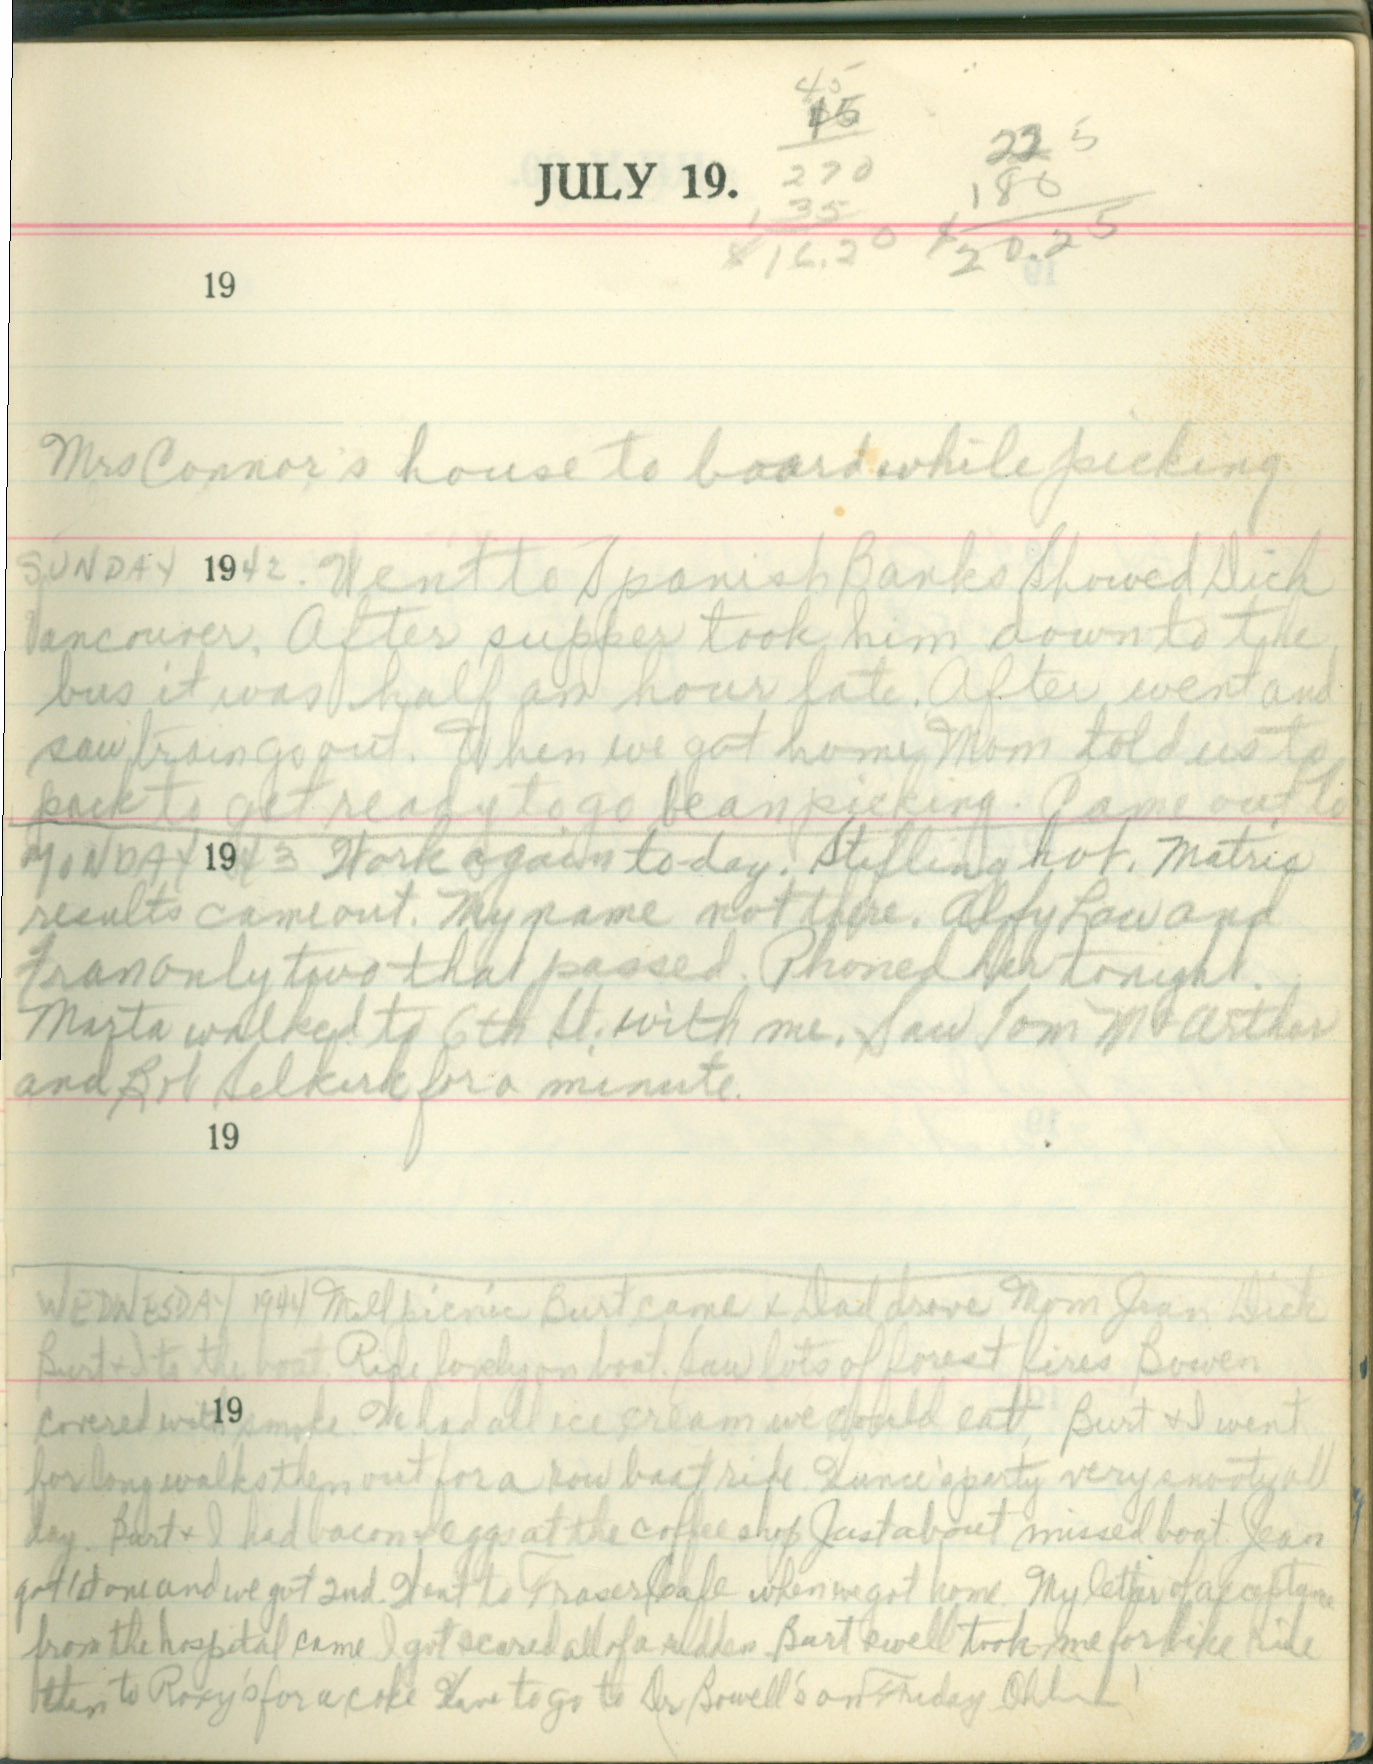 45
15
270
135
$16.20
225
180
$20.25
JULY 19.
19
Mrs Connor's house to board while picking
SUNDAY 1942. Went to Spanish Banks Showed Dick
Vancouver. After supper took him down to the
bus it was half an hour late. After went and
saw train go out. When we got home Mom told us to
pack to get ready to go bean picking. Came out to
MONDAY 1943 Work again to-day. Stifling hot. Matric
results came out. My name not there. Alfy Law and
Fran only two that passed. Phoned her tonight.
Marta walked to 6th St. with me. Saw Tom McArthur
and Bob Selkirk for a minute.
19
WEDNESDAY 1944 Mill picnic Burt came & Dad drove Mom Jean Dick
Burt & I to the boat. Ride lovely on boat. Saw lots of forest fires Bowen
19
covered with smoke. We had all ice cream we could eat, Burt & I went
for long walks then out for a row boat ride. party very snooty all
day. Burt & I had bacon & eggs at the coffee shop Just about missed boat. Jean
got 1st one and we got 2nd. Went to Fraser Cafe when we got home. My letter of acceptance
from the hospital came I got scared all of a sudden. Burt swell took me for bike ride
then to Roxy's for a coke Have to go to Dr Bowell's on Friday